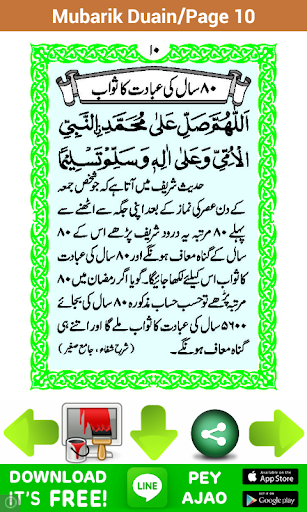 Mubarik Duain/Page 10
۱۰
۸۰ سال کی عبادت کا ثواب
اَللّٰهُمَّ صَلِّ عَلٰى مُحَمَّدِ ِۨالنَّبِيِّ
الْاُمِّيِّ وَعَلٰى اٰلِهٖ وَسَلِّمْ تَسْلِيْمًا
حدیث شریف میں آتا ہے کہ جو شخص جمعہ
کے دن عصر کی نماز کے بعد اپنی جگہ سے اٹھنے سے
پہلے ۸۰ مرتبہ یہ درود شریف پڑھے اس کے ۸۰
سال کے گناہ معاف ہونگے اور ۸۰ سال کی عبادت
کا ثواب اس کیلئے لکھا جائیگا۔ گویا اگر رمضان میں ۸۰
مرتبہ پڑھے تو حسب حساب مذکورہ ۸۰ سال کی بجائے
۵۶۰۰ سال کی عبادت کا ثواب ملے گا اور اتنے ہی
گناہ معاف ہونگے۔ (شرح شفاء، جامع صغیر)
DOWNLOAD
IT'S FREE!
LINE
PEY
AJAO
Available on the
App Store
Google play